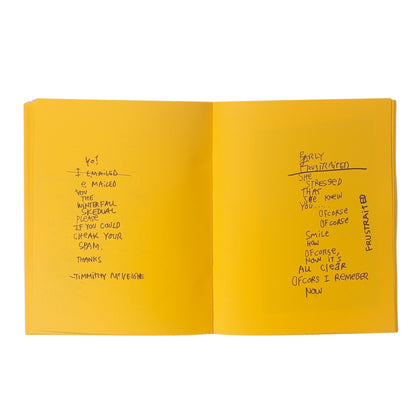 YO!
I EMAILED
E MAILED
YOU
THE
WINTERFALL
SKEDUAL
PLEASE
IF YOU COULD
CHEAK YOUR
SPAM.
THANKS
-TIMMITHY
EARLY
FRUSTRAITED
SHE
STRESSED
THAT
SHE KNEW
YOU....
OFCORSE
OFCORSE
SMILE
NOW
OFCORSE,
NOW IT'S
ALL CLEAR
OFCORS I REMEBER
NOW
FRUSTRAITED